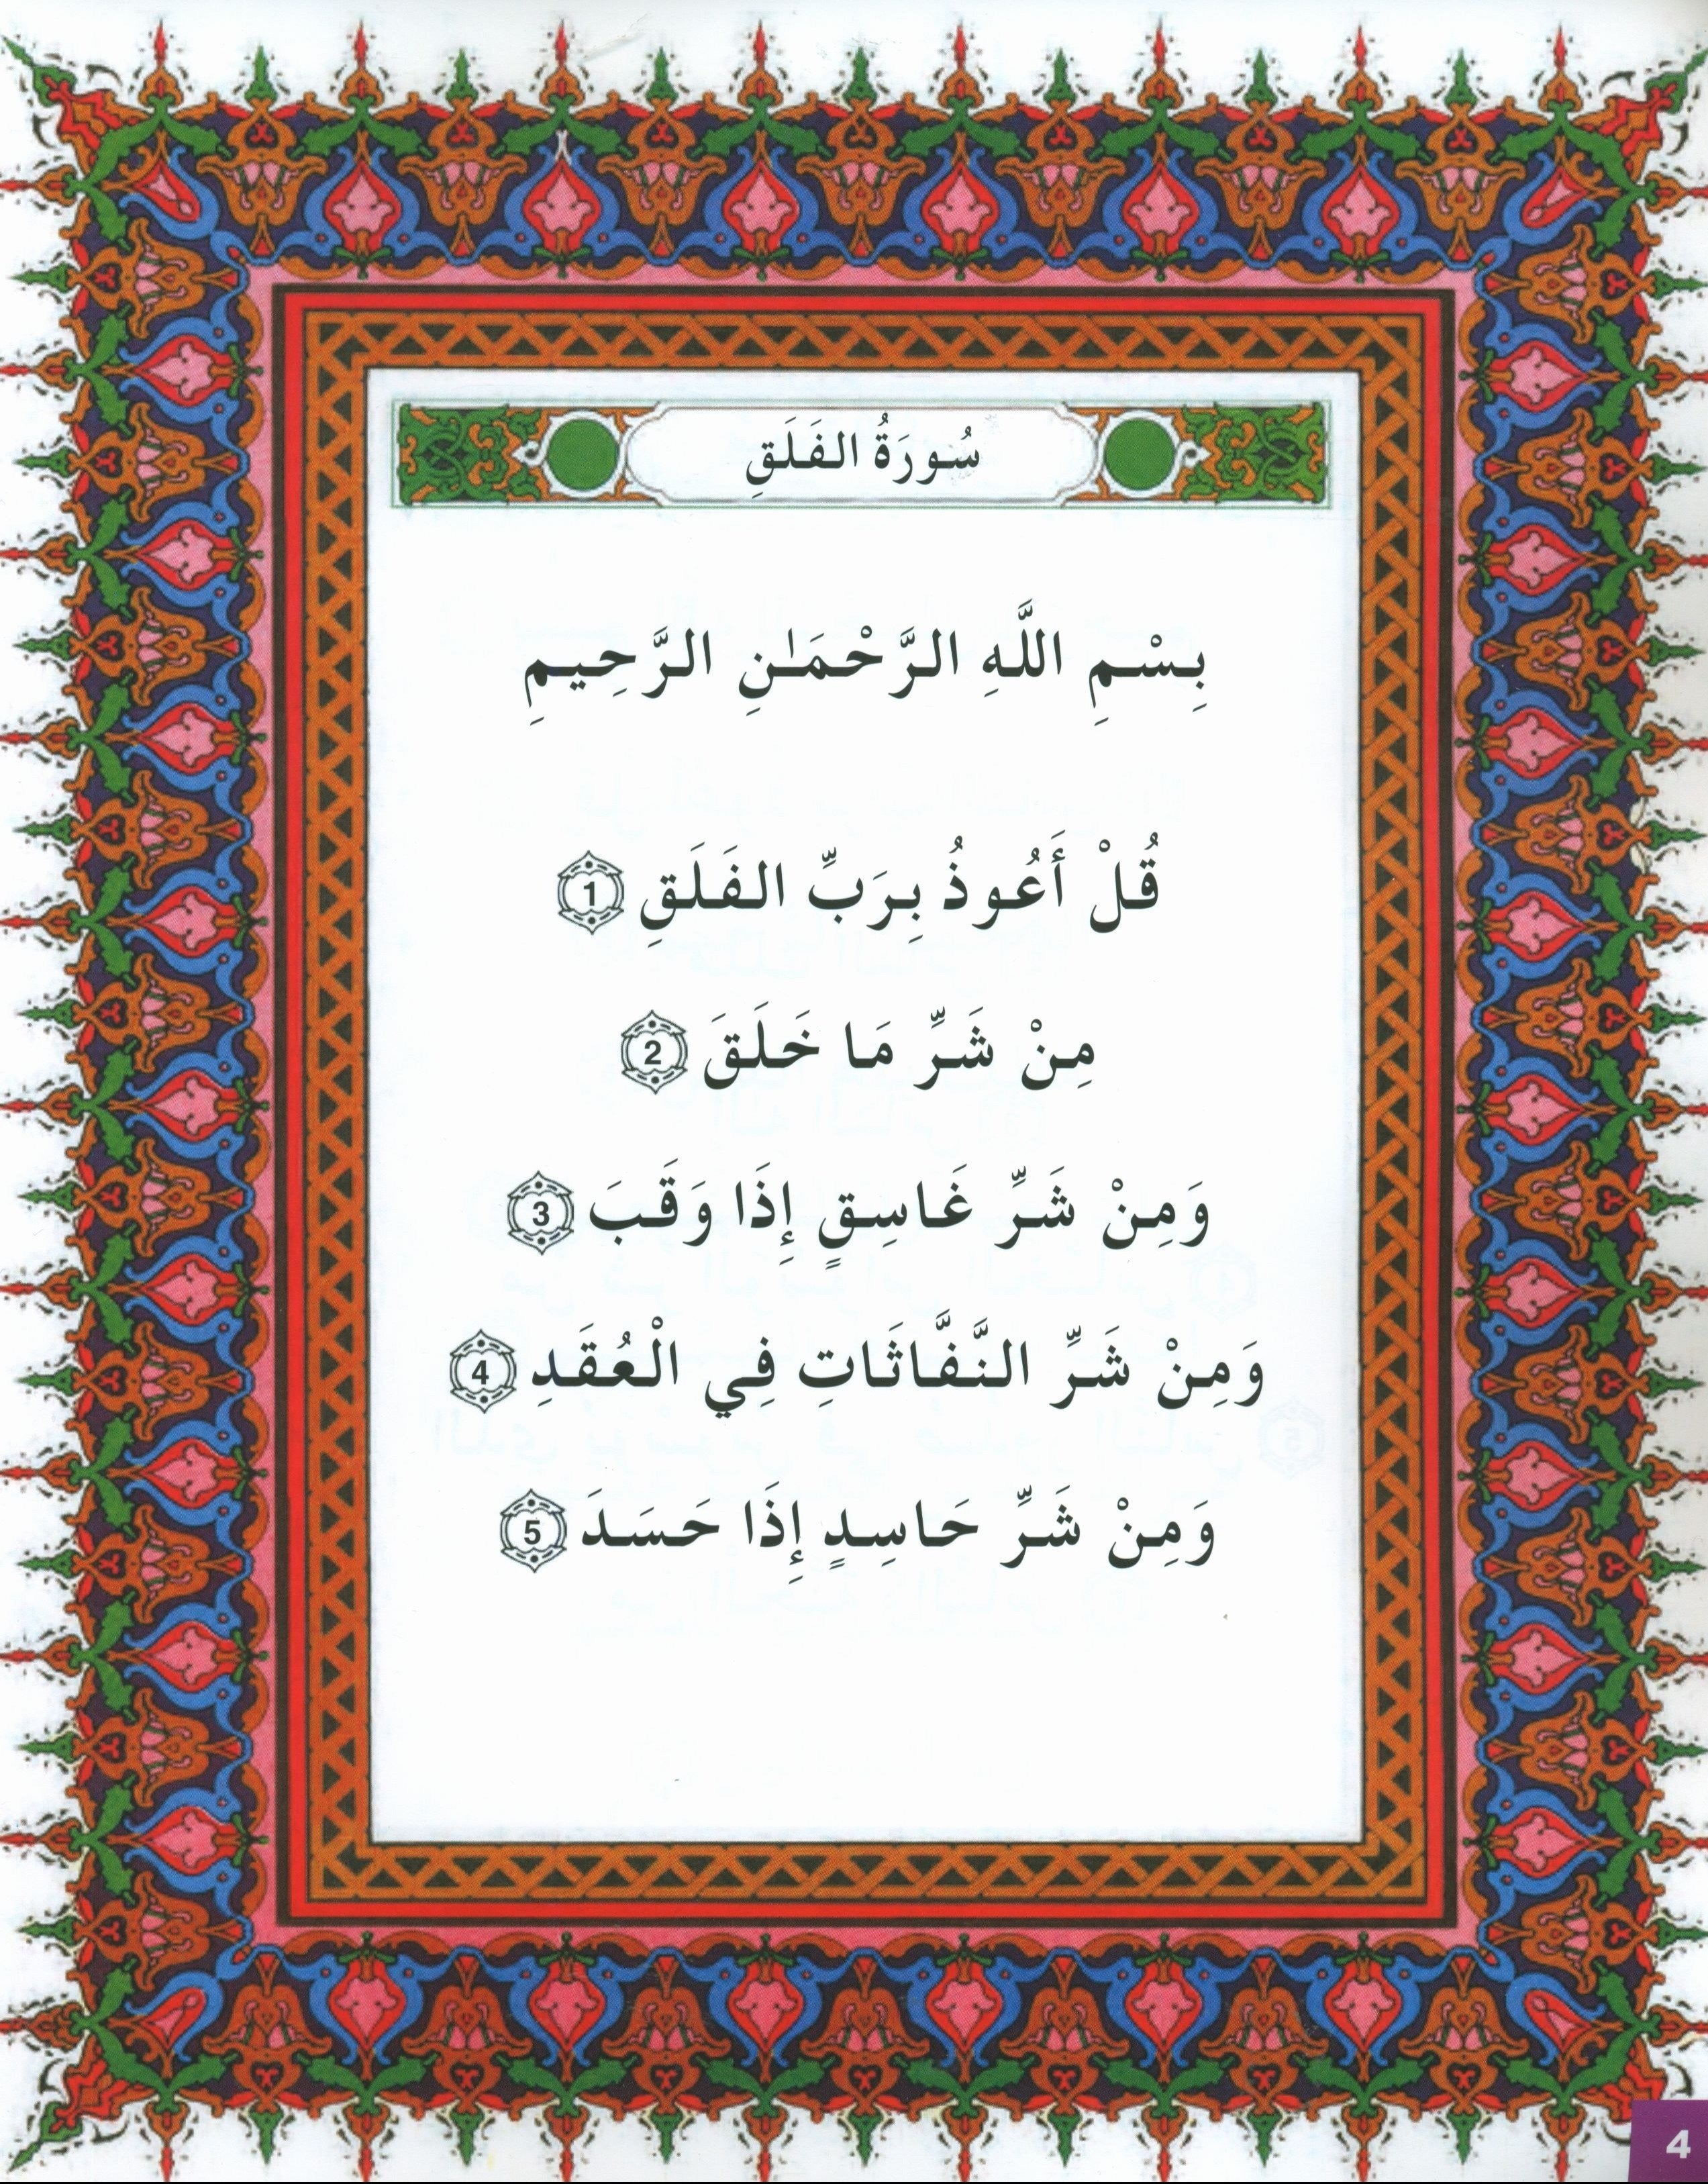 سُورَةُ الفَلَقِ
بِسْمِ اللَّهِ الرَّحْمَٰنِ الرَّحِيمِ
قُلْ أَعُوذُ بِرَبِّ الفَلَقِ 1
مِنْ شَرِّ مَا خَلَقَ 2
وَمِنْ شَرِّ غَاسِقٍ إِذَا وَقَبَ 3
وَمِنْ شَرِّ النَّفَّاثَاتِ فِي الْعُقَدِ 4
وَمِنْ شَرِّ حَاسِدٍ إِذَا حَسَدَ 5
4